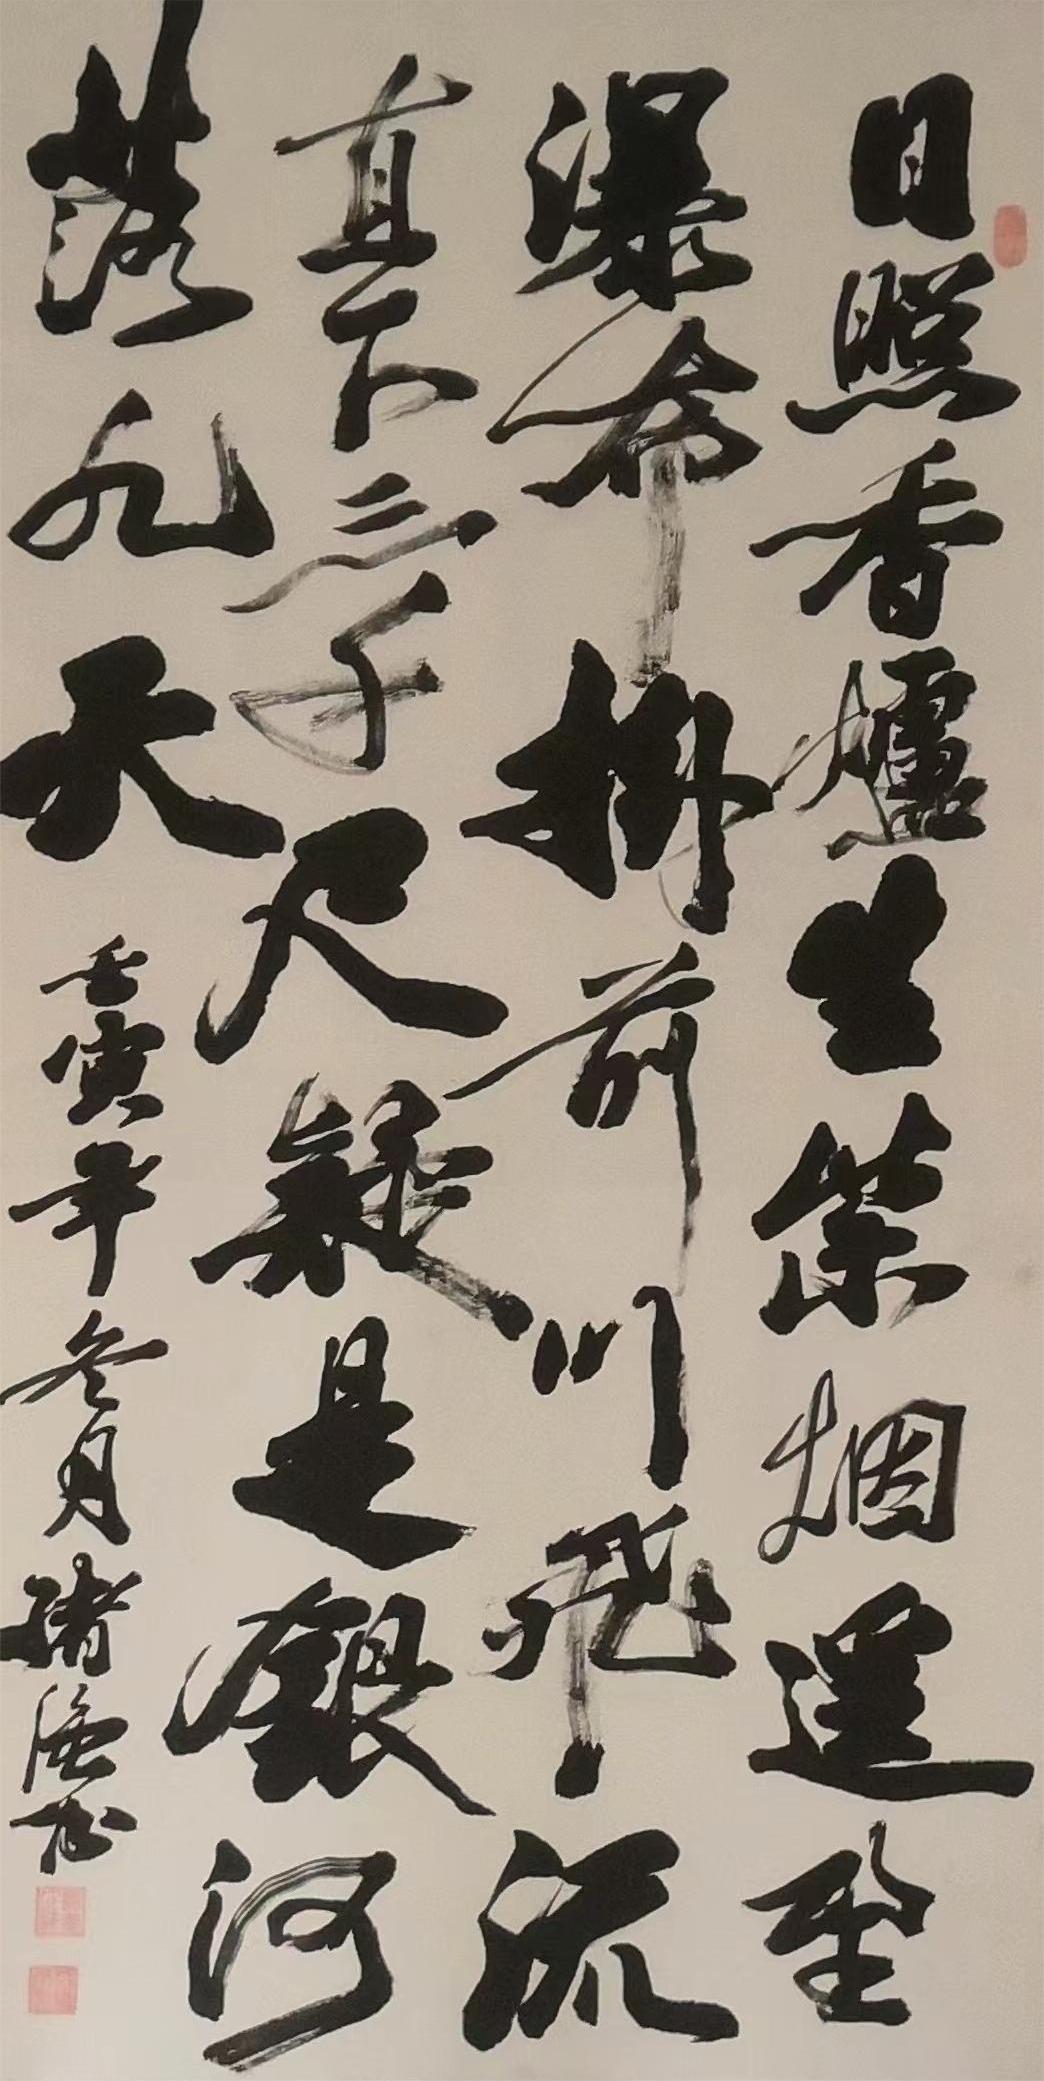 日照香爐生紫烟遥望
瀑布掛前川飛流
直下三千尺疑是銀河
落九天
壬寅年冬月